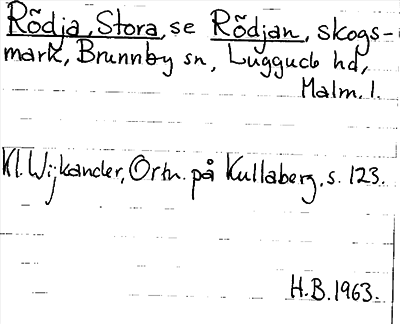 Rödja, Stora, se Rödjan, skogs-
mark, Brunnby sn, Luggude hd,
Malm. l.
Kl. Wijkander, Ortn. på Kullaberg, s. 123.
H.B. 1963.